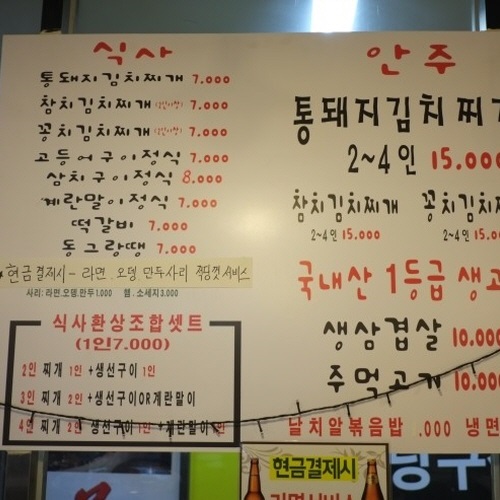 식사
통돼지김치찌개 7.000
참치김치찌개 7.000
꽁치김치찌개 7.000
고등어구이정식 7.000
삼치구이정식 8.000
계란말이정식 7.000
떡갈비 7.000
동그랑땡 7.000
현금결제시 - 라면. 오뎅 만두사리 서비스
사리: 라면.오뎅.만두 1.000 햄.소세지 3.000
식사환상조합셋트
(1인7.000)
2인 찌개 1인 +생선구이 1인
3인 찌개 2인 +생선구이OR계란말이
4인 찌개 2인 생선구이 1인 +계란말이 1인
안주
통돼지김치찌개
2~4인 15.000
참치김치찌개 꽁치김치찌개
2~4인 15.000 2~4인 15.000
국내산 1등급 생고
생삼겹살 10.000
주먹고기 10.000
날치알볶음밥 .000 냉면
현금결제시